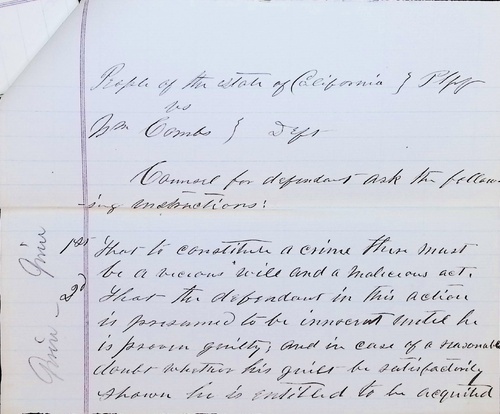 People of the state of California } Plff
vs
Wm Combs } Deft
Counsel for defendant ask the follow-
ing instructions:
1st That to constitute a crime there must
be a vicious will and a malicious act.
2d That the defendant in this action
is presumed to be innocent until he
is proven guilty, and in case of a reasonable
doubt whether his guilt be satisfactorily
shown he is entitled to be acquitted
Given - Given